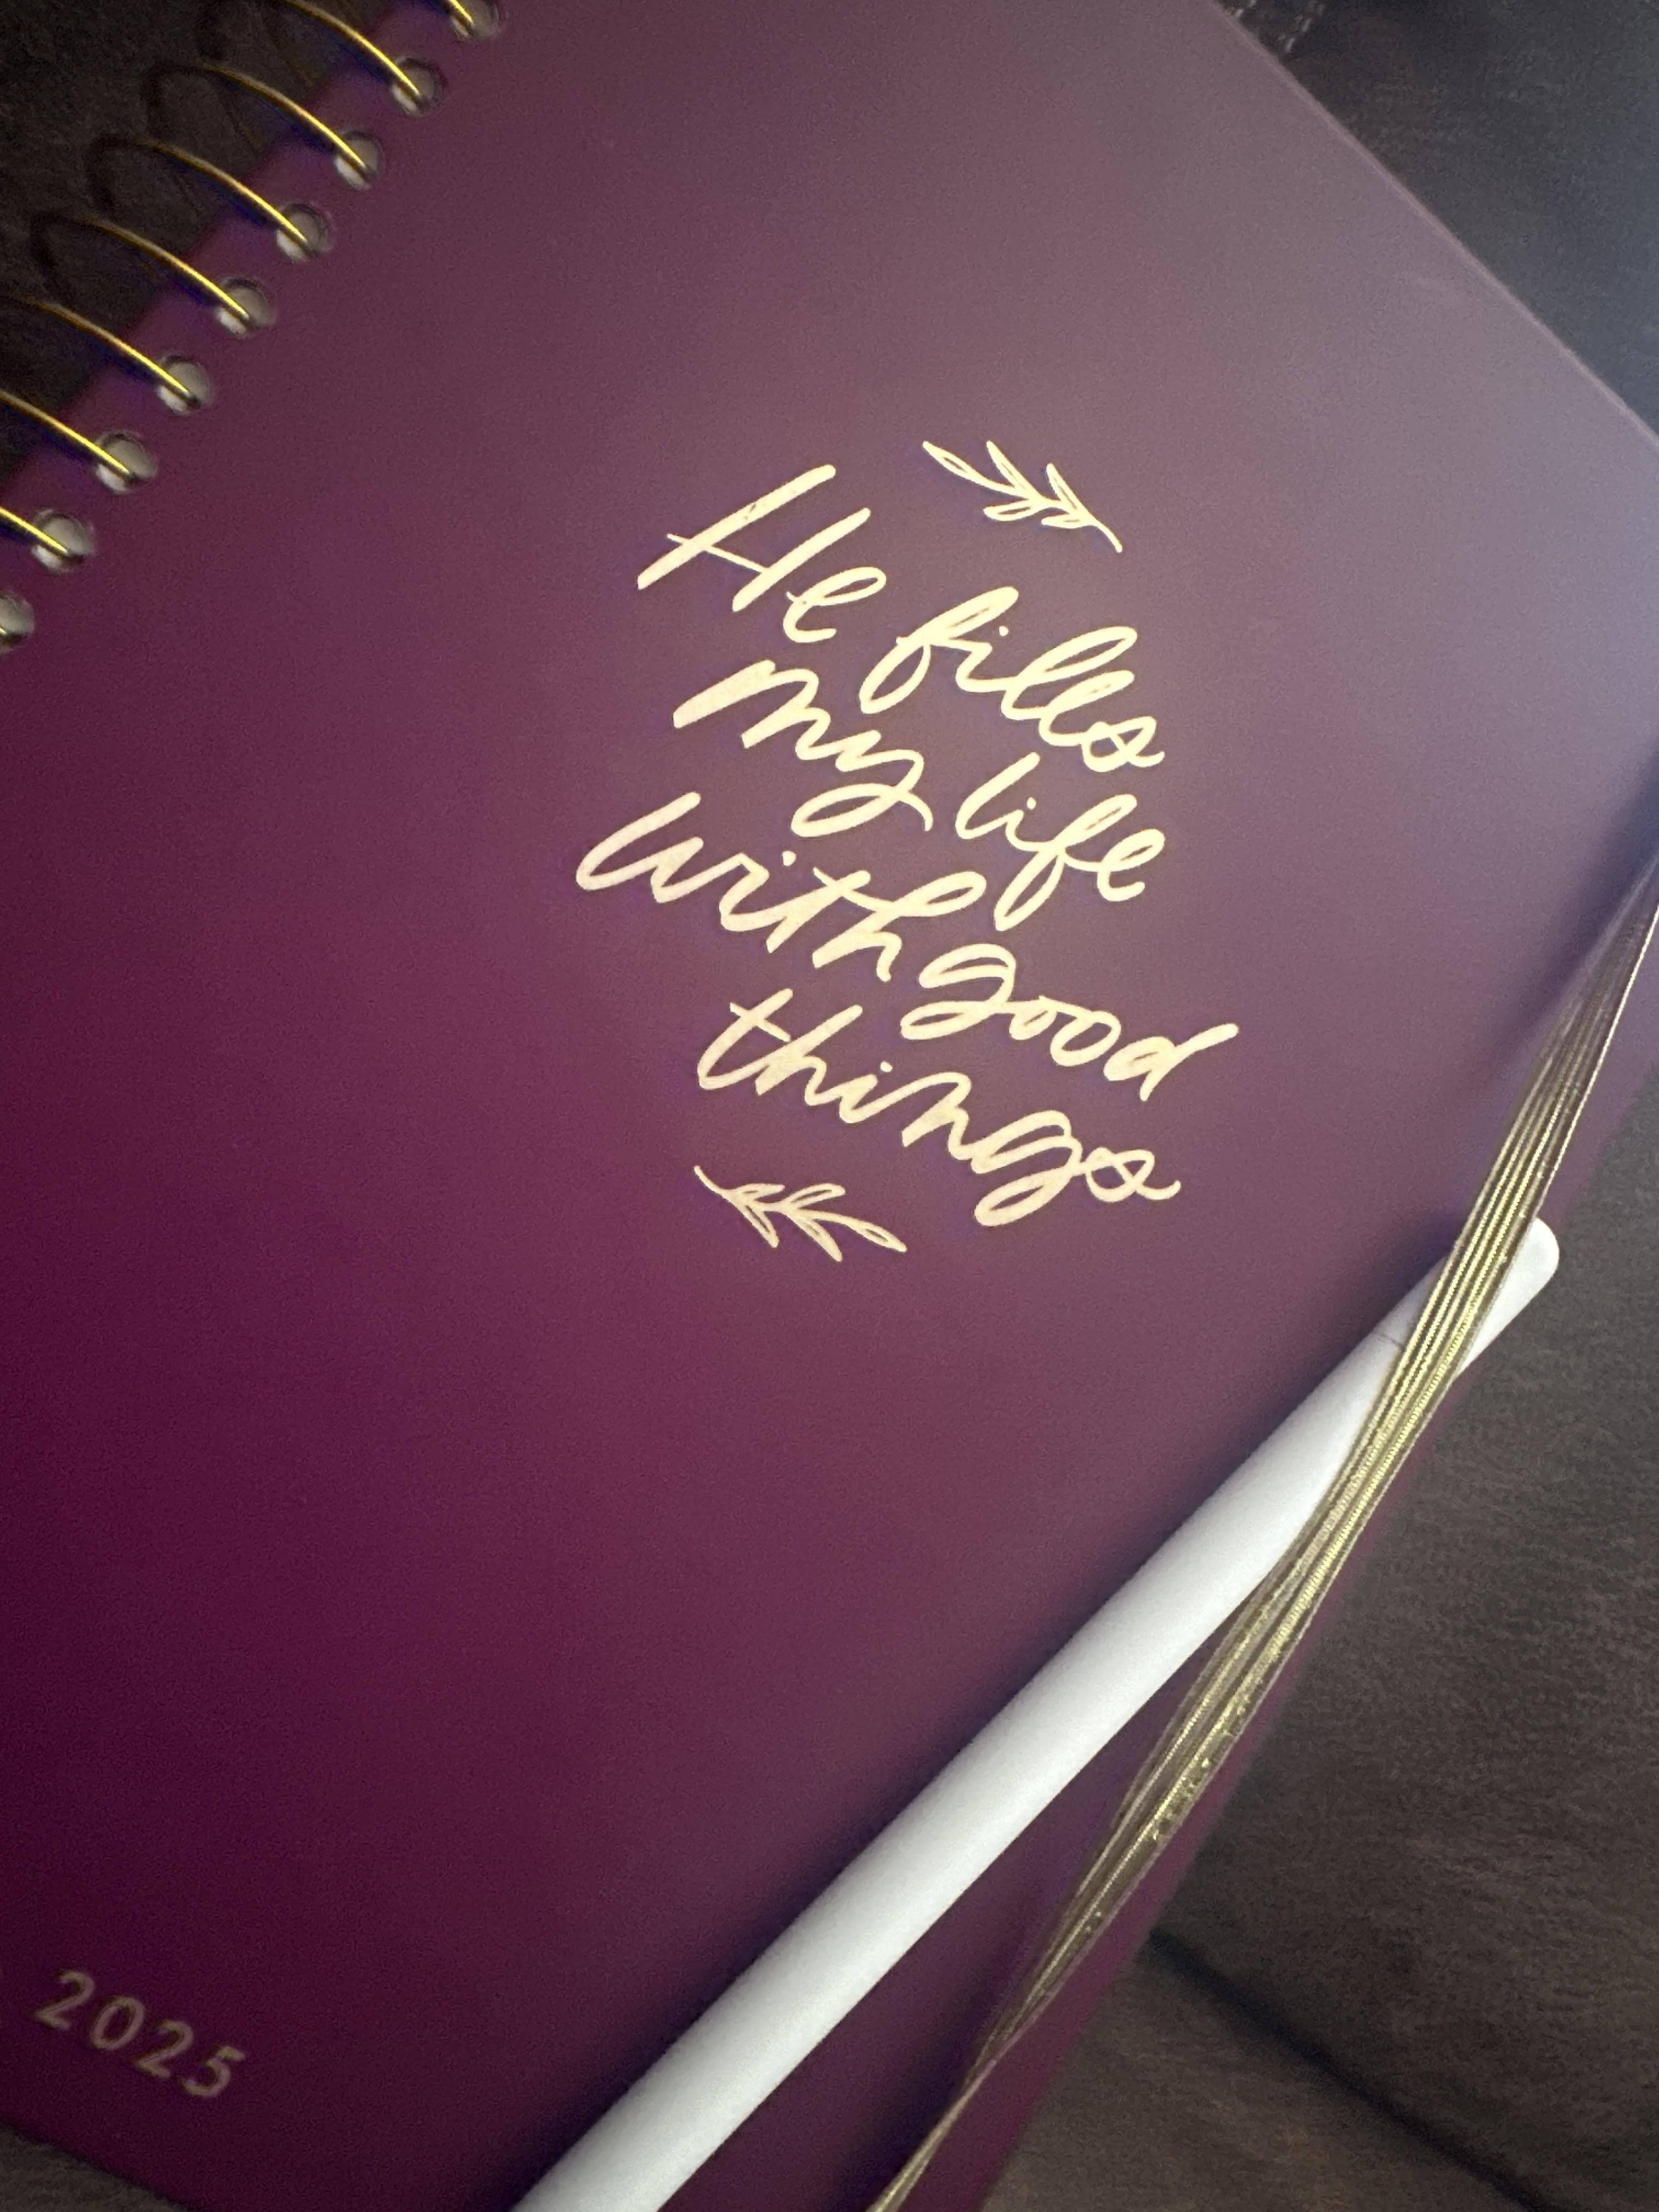 He fills
my life
with good
things
2025